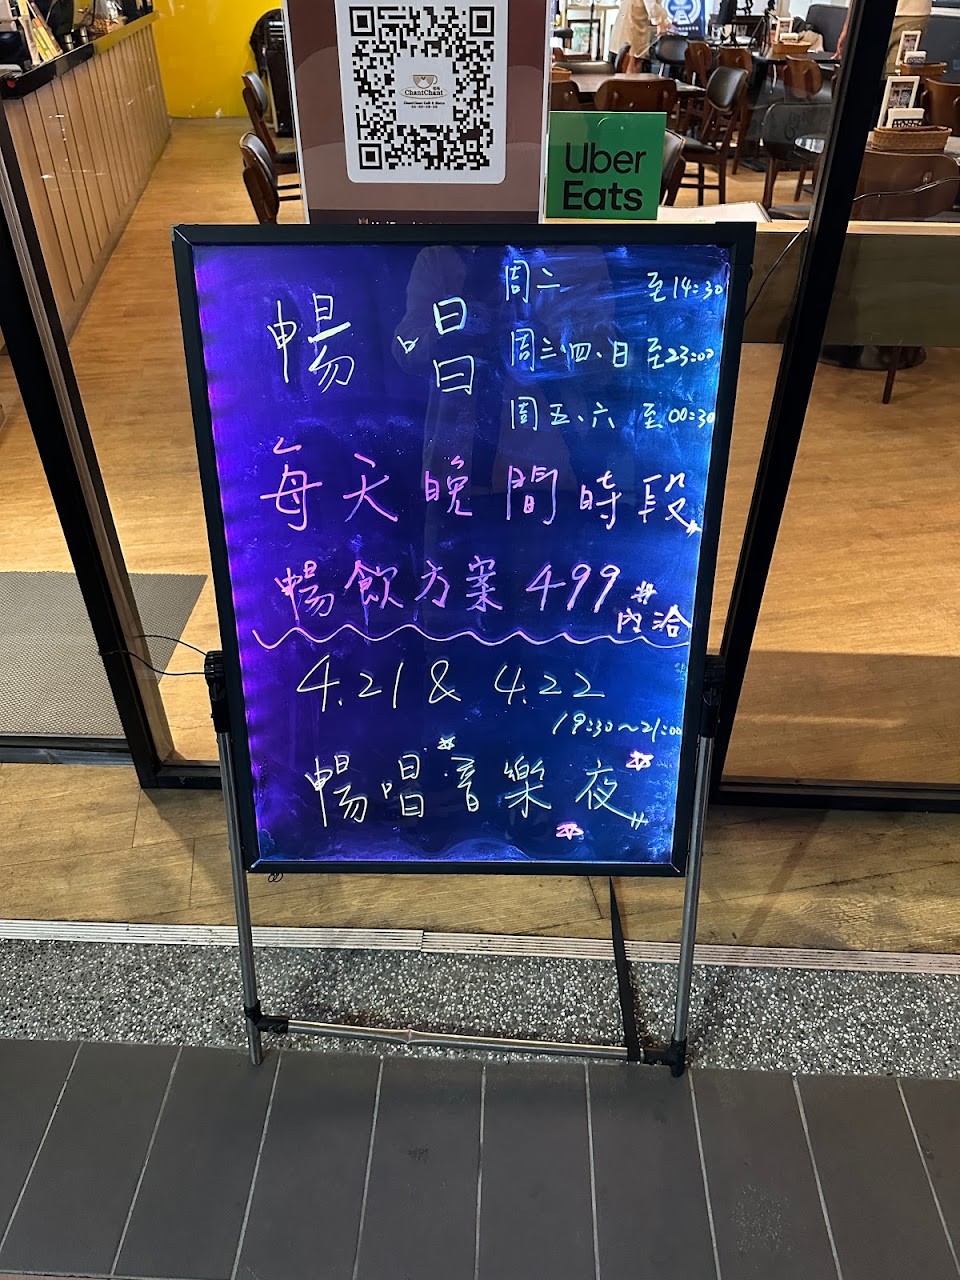 ChantChant
Uber
Eats
暢 唱
周二 至14:30
周三、四、日 至23:00
周五、六 至00:30
每天晚間時段
暢飲方案499
內洽
4.21 & 4.22
19:30～21:00
暢唱音樂夜